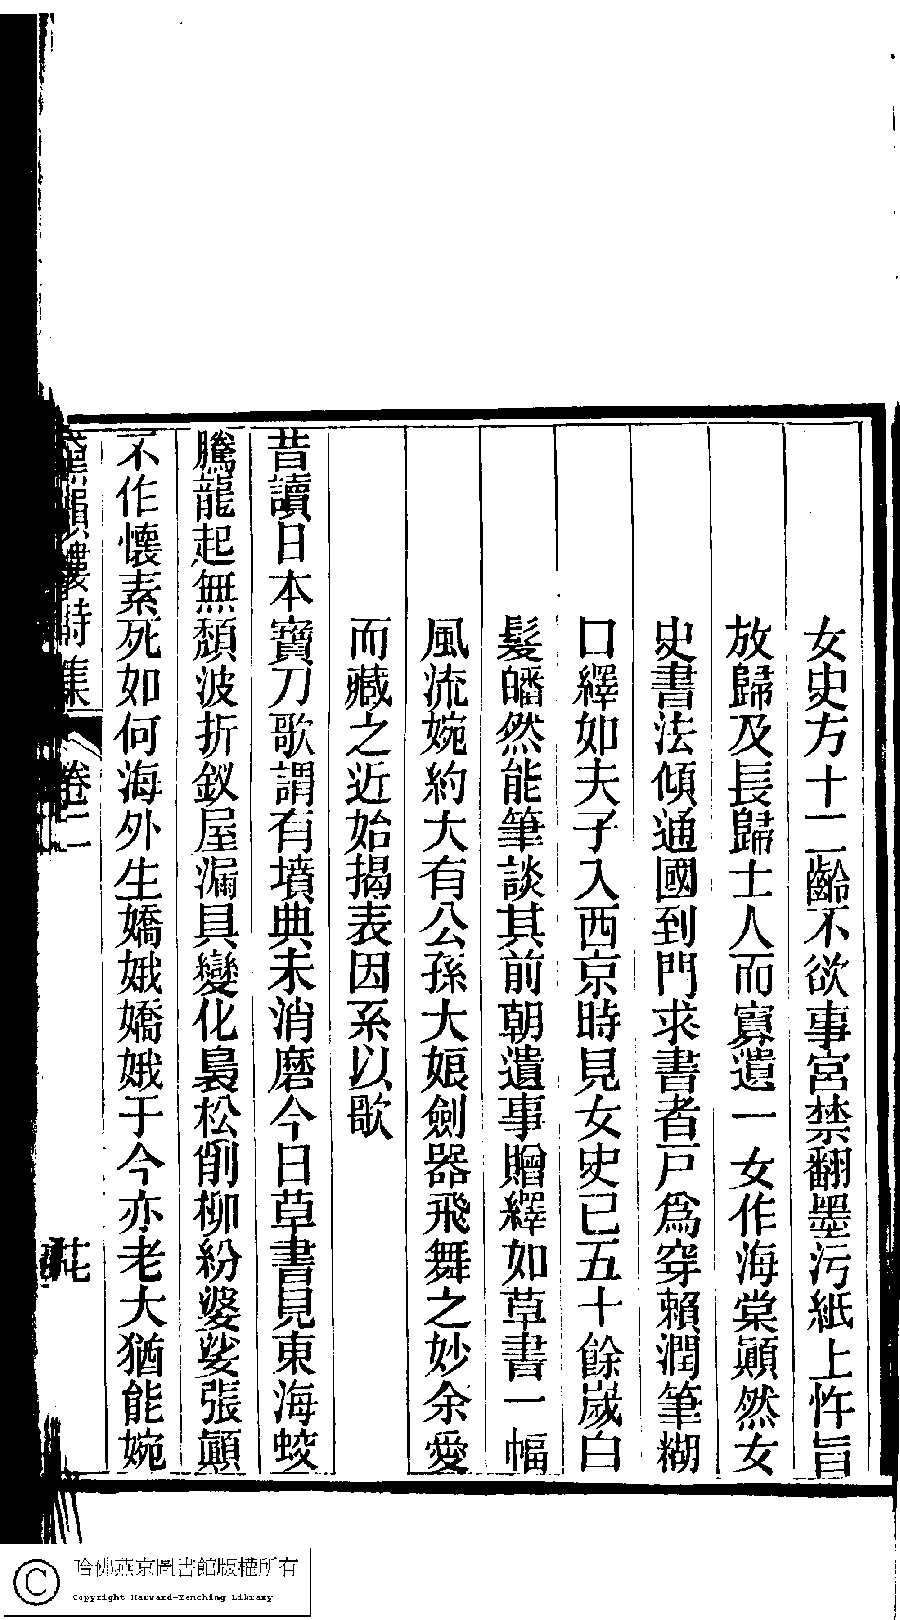 女史方十二齡不欲事宮禁翻墨污紙上忤旨
放歸及長歸士人而寡遺一女作海棠顚然女
史書法傾通國到門求書者戸爲穿賴潤筆糊
口繹如夫子入西京時見女史已五十餘嵗白
髮皤然能筆談其前朝遺事贈繹如草書一幅
風流婉約大有公孫大娘劍器飛舞之妙余愛
而藏之近始揭表因系以歌
昔讀日本寶刀歌謂有墳典未消磨今日草書見東海蛟
騰龍起無頹波折釵屋漏具變化裊松削柳紛婆娑張顚
不作懷素死如何海外生嬌娥嬌娥于今亦老大猶能婉
韻樓詩集
卷二
哈佛燕京圖書館版權所有
Copyright Harvard-Yenching Library